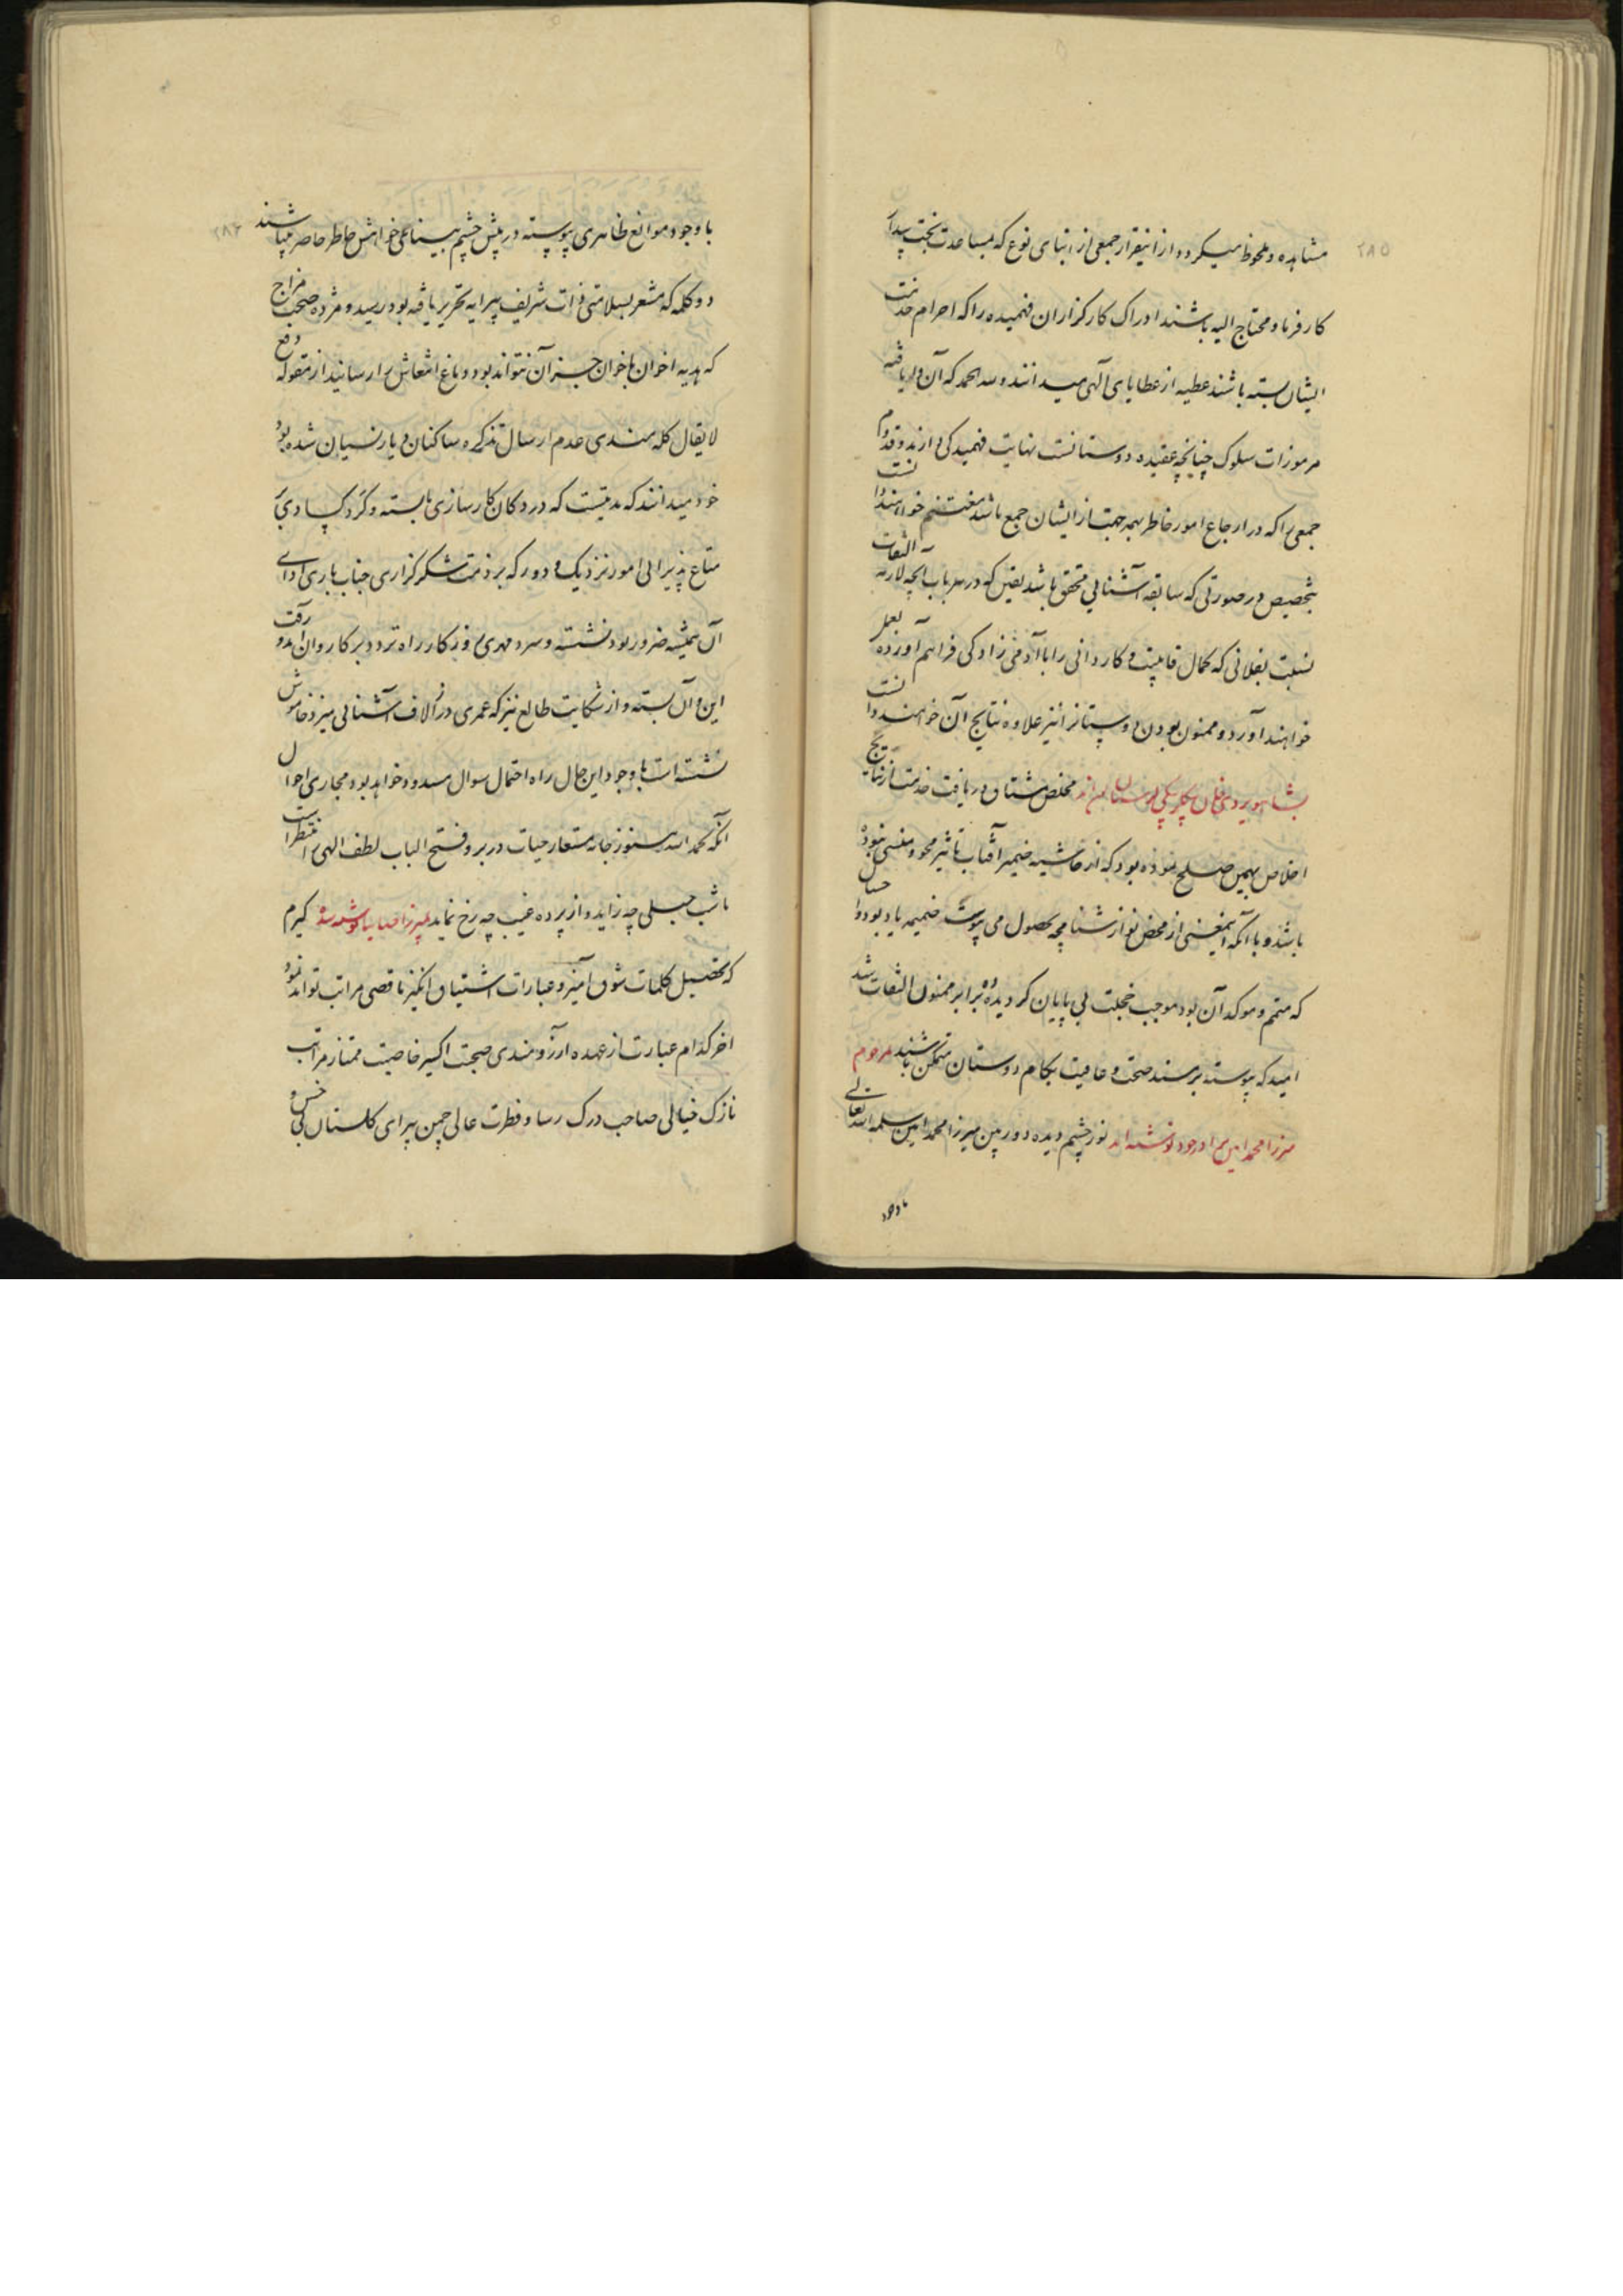 ۲۸۵
مشاهده و ملحوظ میکردد از اینقرار جمعی از ابنای نوع که بمساعدت بخت بیدار
کارفرما و محتاج الیه باشند ادراک کارکزاران فهمیده را که احرام خدمت
ایشان بسته باشند عطیه از عطایای آلهی میدانند و لله الحمد که آن دریافته
مرموزات سلوک چنانچه عقیده دوستانست نهایت فهمیدکی دارند و قدوم
جمعی را که در ارجاع امور خاطر بهمه جهت از ایشان جمع باشد مغتنم خواهند دانست
بتخصیص در صورتی که سابقه آشنایی متحقق باشد یقین که در هر باب آنچه لازمه التفات
نسبت بفلانی که کمال قابلیت و کاردانی را با آدمی زادکی فراهم آورده بعمل
خواهند آورد و ممنون بودن دوستانرا نیز علاوه نتایج آن خواهند دانست
مخلص مشتاق دریافت خدمت از نتایج
اخلاص بهمین صلح نموده بود که از حاشیه ضمیر آفتاب تاثیر محو و منسی نبوده
باشد و با آنکه اینمعنی از محض نوازشنامچه بحصول می پیوست ضمیمه یادبود و احسان
که متمم و موکد آن بود موجب خجلت بی پایان کردیده برابر ممنون التفات شد
امید که پیوسته بر مسند صحت و عافیت بکام دوستان متمکن باشند مرحوم
میرزا محمد امین برادر خود نوشته اند نور چشم دیده دوربین میرزا محمد امین سلمه الله تعالی
باوجود
۲۸۶
باوجود موانع ظاهری پیوسته در پیش چشم بینایی خواهش خاطر حاضر میباشند
دو کلمه که مشعر بسلامتی ذات شریف پیرایه تحریر یافته بود رسید و مژده صحت مزاج
که هدیه اخوان باخوان جز آن نتواند بود دماغ انتعاش را رسانید از مقوله
لایقال کله مندی عدم ارسال تذکره ساکنان دیار نسیان شده بود
خود میدانند که مدتیست که در دکان کارسازی بسته و کرد کسادی
متاع پذیرائی امور نزدیک و دور که بر ذمت شکرکزاری جناب باری ادای
آن همیشه ضرور بود نشسته و سرد مهری روزکار راه تردد بر کاروان آمد و رفت
این و آن بسته و از شکایت طالع نیز که عمری در لاف آشنائی میزد خاموش
نشسته است باوجود این حال راه احتمال سوال مسدود خواهد بود مجاری احوال
آنکه بحمد الله هنوز جامه مستعار حیات در بر و فتح الباب لطف الهی را منتظر است
تا شب حبلی چه زاید و از پرده غیب چه رخ نماید کیرم
که تفصیل کلمات شوق آمیز و عبارات اشتیاق انکیز باقصی مراتب تواند نمود
اخر کدام عبارت از عهده آرزومندی صحبت اکسیر خاصیت ممتاز مراتب
نازک خیالی صاحب درک رسا و فطرت عالی چمن پیرای کلستان بی